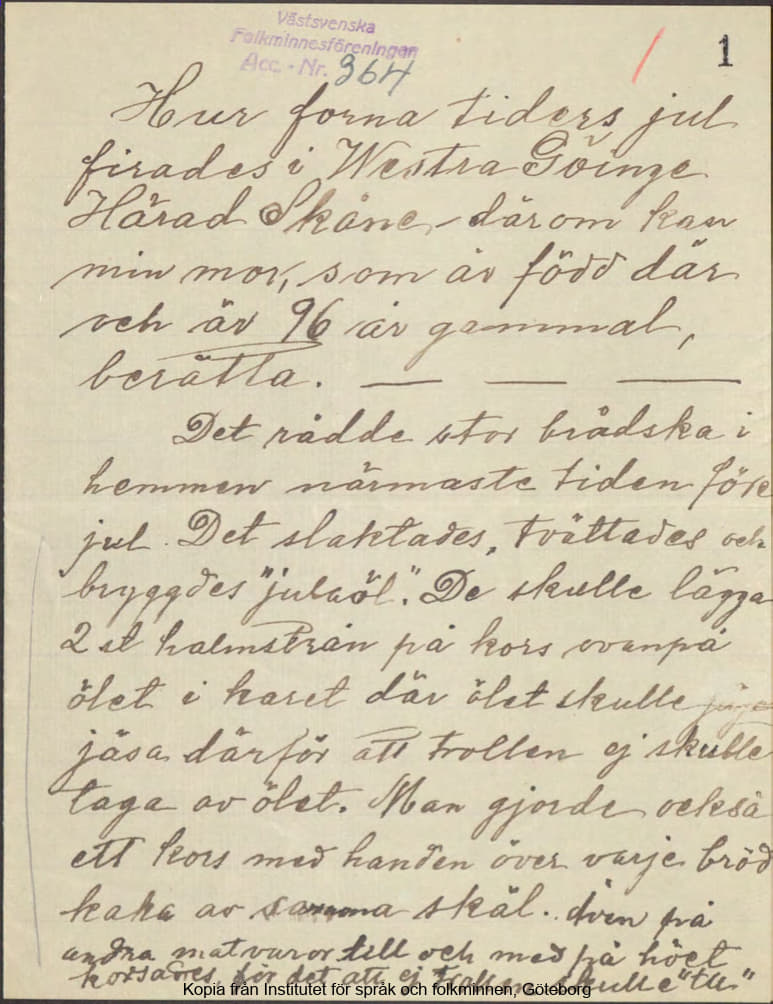 Västsvenska
Folkminnesföreningen
Acc. - Nr. 364
1
Hur forna tiders jul
firades i Westra Göinge
Härad Skåne, därom kan
min mor, som är född där
och är 96 år gammal,
berätta. — — —
Det rådde stor brådska i
hemmen närmaste tiden före
jul. Det slaktades, tvättades och
bryggdes "julaöl". De skulle lägga
2 st halmstrån på kors ovanpå
ölet i karet där ölet skulle
jäsa därför att trollen ej skulle
taga av ölet. Man gjorde också
ett kors med handen över varje bröd
kaka av samma skäl. Även på
andra matvaror till och med på höet
korsades för det att ej trollen skulle "ta"
Kopia från Institutet för språk och folkminnen, Göteborg